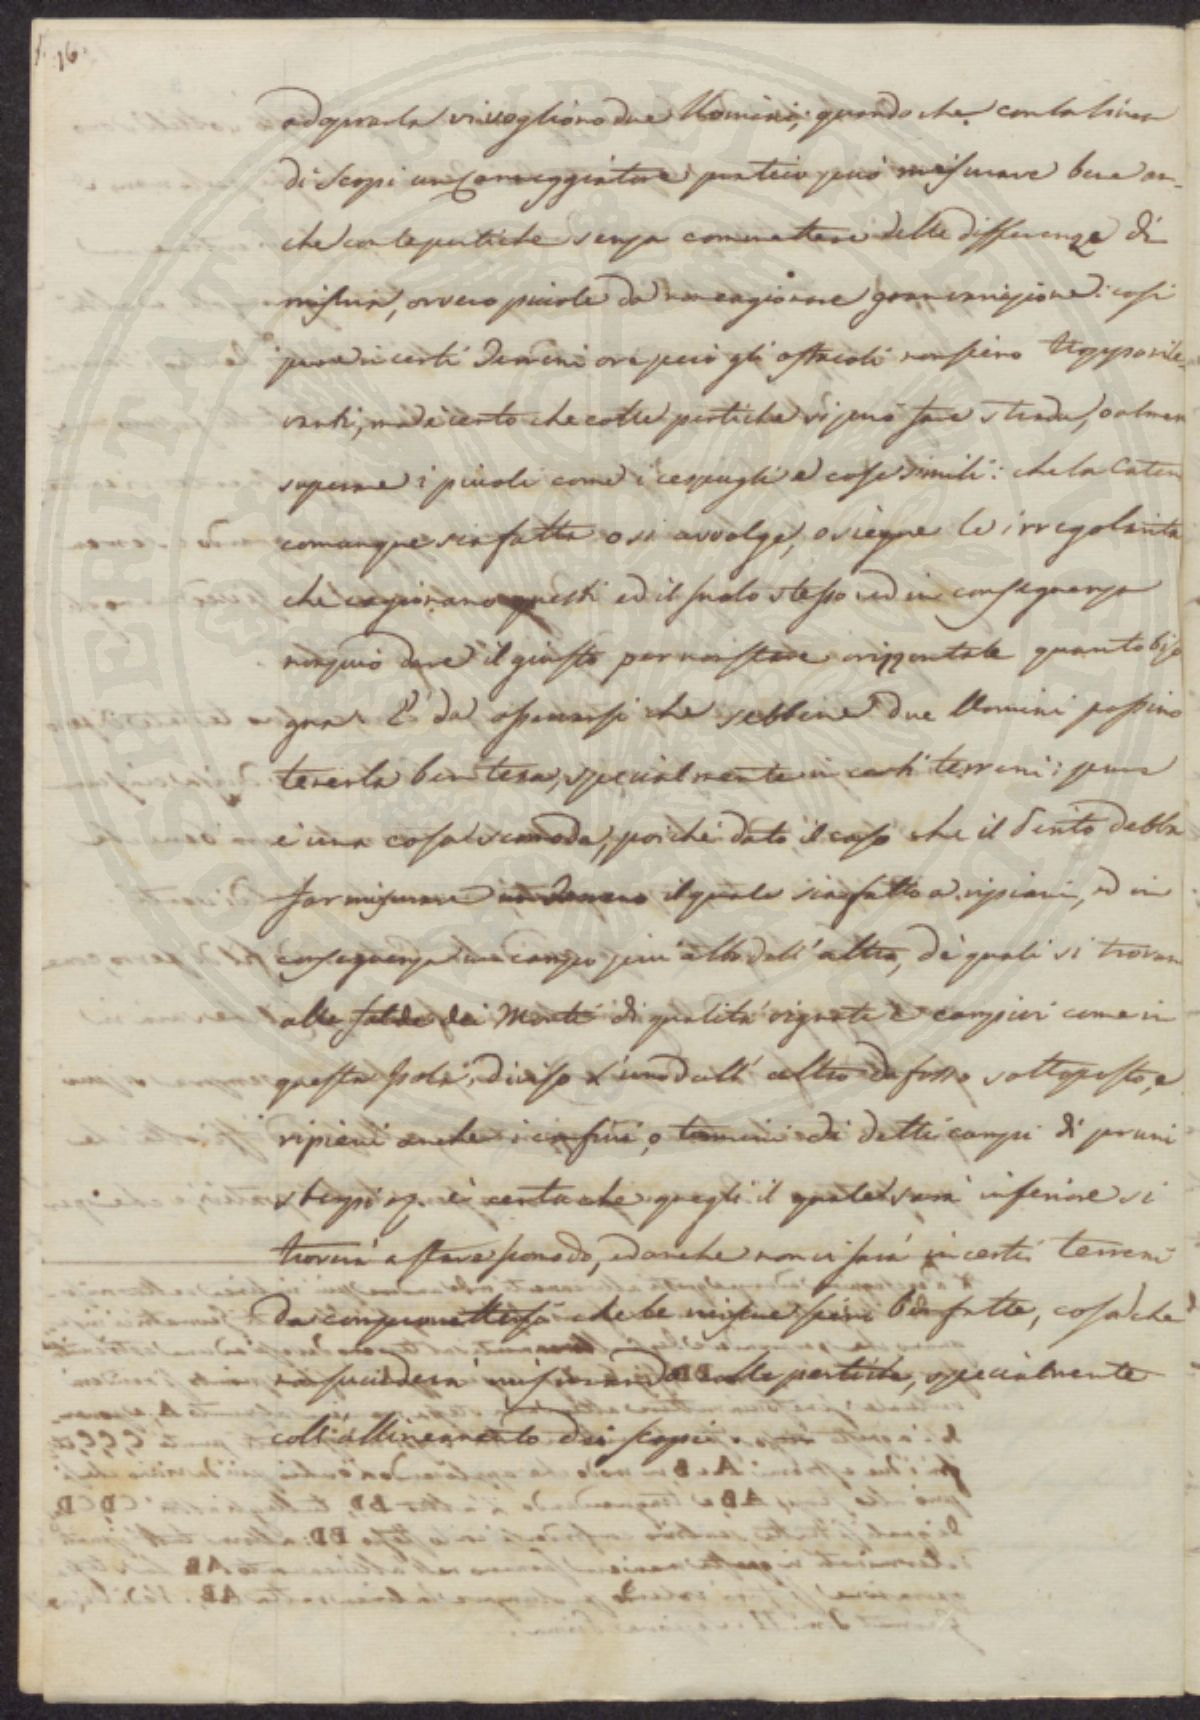 16.
adoprarla vi vogliono due Uomini; quando che con la linea
di Scopi un Correggiatore pratico può misurare bene an-
che con le pertiche senza commettere delle differenze di
misura, ovvero piccole da non cagionare gran variazione: così
pure in certi Terreni ove però gli ostacoli non sieno troppo rile-
vanti, ma è certo che colle pertiche si può fare strada, o almen
superare i piccoli come i cespugli e cose simili: che la Caten
comunque sia fatta o si avvolge, o siegue le irregolarità
che cagionano questi ed il suolo stesso ed in conseguenza
non può dare il giusto per non stare orizzontale quanto biso
gna. È da osservarsi che sebbene due Uomini possino
tenerla ben tesa, specialmente in certi terreni; pure
è una cosa scomoda, poiché dato il caso che il Perito debba
far misurare un Terreno il quale sia fatto a ripiani, ed in
conseguenza un campo più alto dell'altro, de quali si trovan
alle falde dei Monti di qualità vignati e campivi come in
questa Isola, diviso l'uno dall'altro da fosso sottoposto, e
ripieni anche i confini, o termini di detti campi di pruni
sterpi è certo che quegli il quale sarà inferiore si
troverà a stare scomodo, ed anche non vi sarà in certi terreni
da compromettersi che le misure sieno ben fatte, cosa che
non succederà misurando colle pertiche, specialmente
coll'allineamento dei scopi